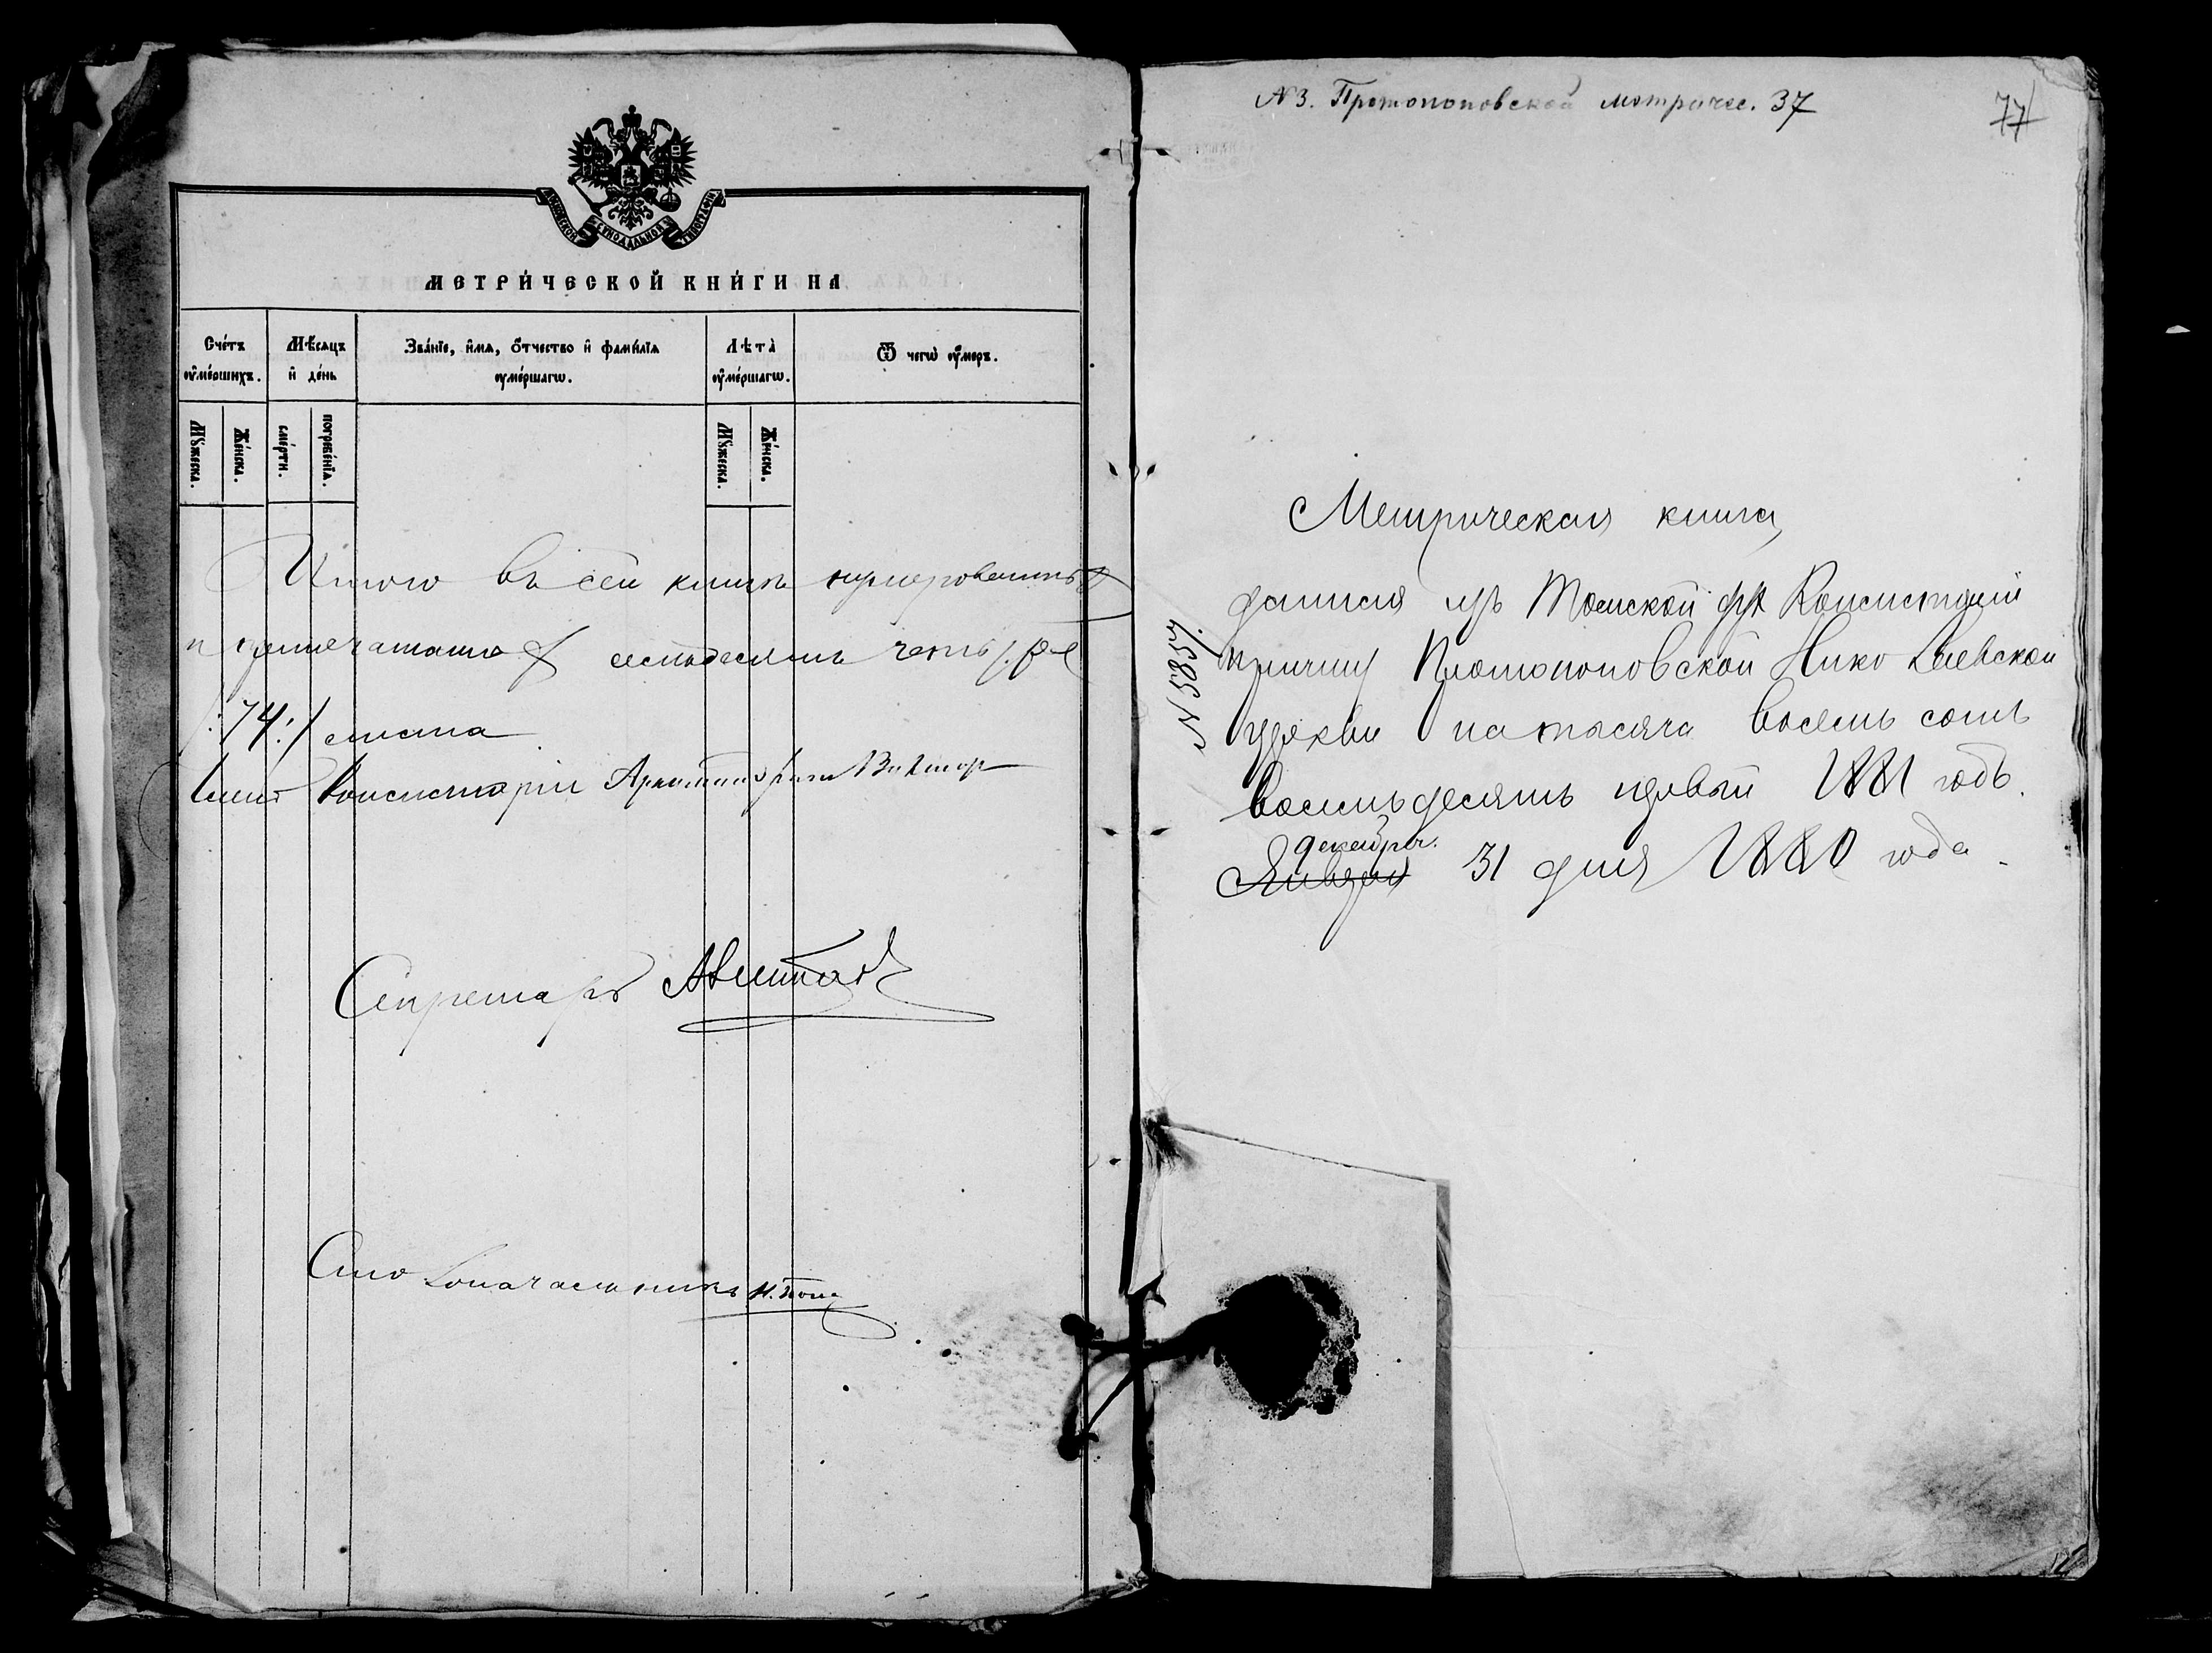 МОСКОВСКОЙ СУНОДАЛЬНОЙ ТИПОГРАФІИ
МЕТРИ́ЧЕСКОЙ КНИ́ГИ НА
Сче́тъ ᲂу҆ме́ршихъ.
Мѣ́сяцъ и҆ де́нь
Зва́нїе, и҆́мѧ, ѻ҆́тчество и҆ фами́лїѧ ᲂу҆ме́ршагѡ.
Лѣ́та ᲂу҆ме́ршагѡ.
Ѿ чегѡ̀ ᲂу҆́меръ.
Мꙋ́жеска.
Же́нска.
сме́рти.
погребе́нїѧ.
Мꙋ́жеска.
Же́нска.
Итого въ сей книгѣ нумерованныхъ
и припечатано семьдесятъ четыре
/:74:/ листа
Членъ Консисторіи Архимандритъ Викторъ
Секретарь
Столоначальникъ Н. Попо
№3. Протопоповской метричес. 37
77
Метрическая книга,
данная изъ Томской Дух Консисторіи
причту Протопоповской Николаевской
церкви на тысяча восемь сотъ
восемьдесятъ первый 1881 годъ.
декабря.
Января 31 дня 1880 года.
№ 5857.